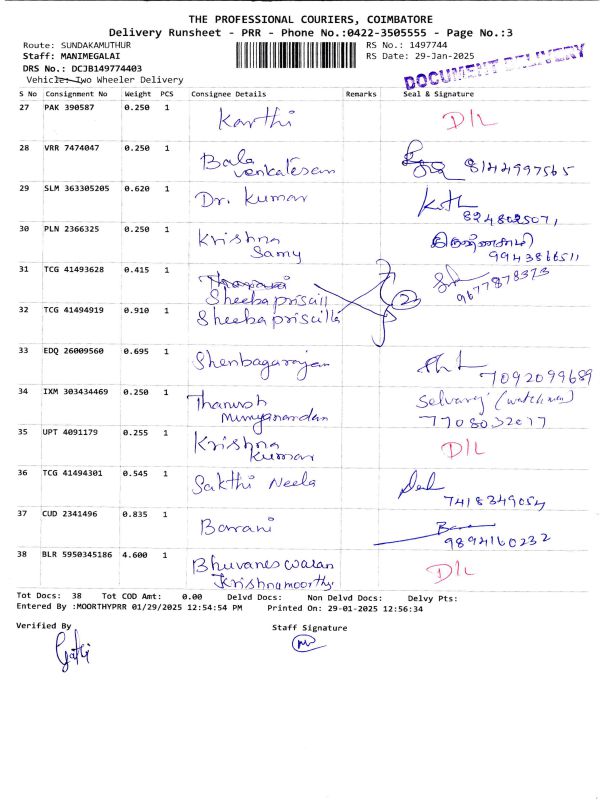 THE PROFESSIONAL COURIERS, COIMBATORE
Delivery Runsheet - PRR - Phone No.:0422-3505555 - Page No.:3
Route: SUNDAKAMUTHUR
RS No.: 1497744
Staff: MANIMEGALAI
RS Date: 29-Jan-2025
DRS No.: DCJB149774403
DOCUMENT DELIVERY
Vehicle: Two Wheeler Delivery
S No Consignment No Weight PCS Consignee Details Remarks Seal & Signature
27 PAK 390587 0.250 1 Karthi D/L
28 VRR 7474047 0.250 1 Bala venkatesan 8144997565
29 SLM 363305205 0.620 1 Dr. Kumar 8248025071
30 PLN 2366325 0.250 1 Krishna Samy 9943866511
31 TCG 41493628 0.415 1 Sheeba priscill 9677878373
32 TCG 41494919 0.910 1 Sheeba priscilla 2
33 EDQ 26009560 0.695 1 Shenbagarajan 7092099689
34 IXM 303434469 0.250 1 Thanush Muniyanandan Selvaraj (watchman) 7708032077
35 UPT 4091179 0.255 1 Krishna Kumar D/L
36 TCG 41494301 0.545 1 Sakthi Neela 7418349054
37 CUD 2341496 0.835 1 Barrani 9894160232
38 BLR 5950345186 4.600 1 Bhuvaneswaran Krishnamoorthy D/L
Tot Docs: 38 Tot COD Amt: 0.00 Delvd Docs: Non Delvd Docs: Delvy Pts:
Entered By :MOORTHYPRR 01/29/2025 12:54:54 PM Printed On: 29-01-2025 12:56:34
Verified By
Staff Signature